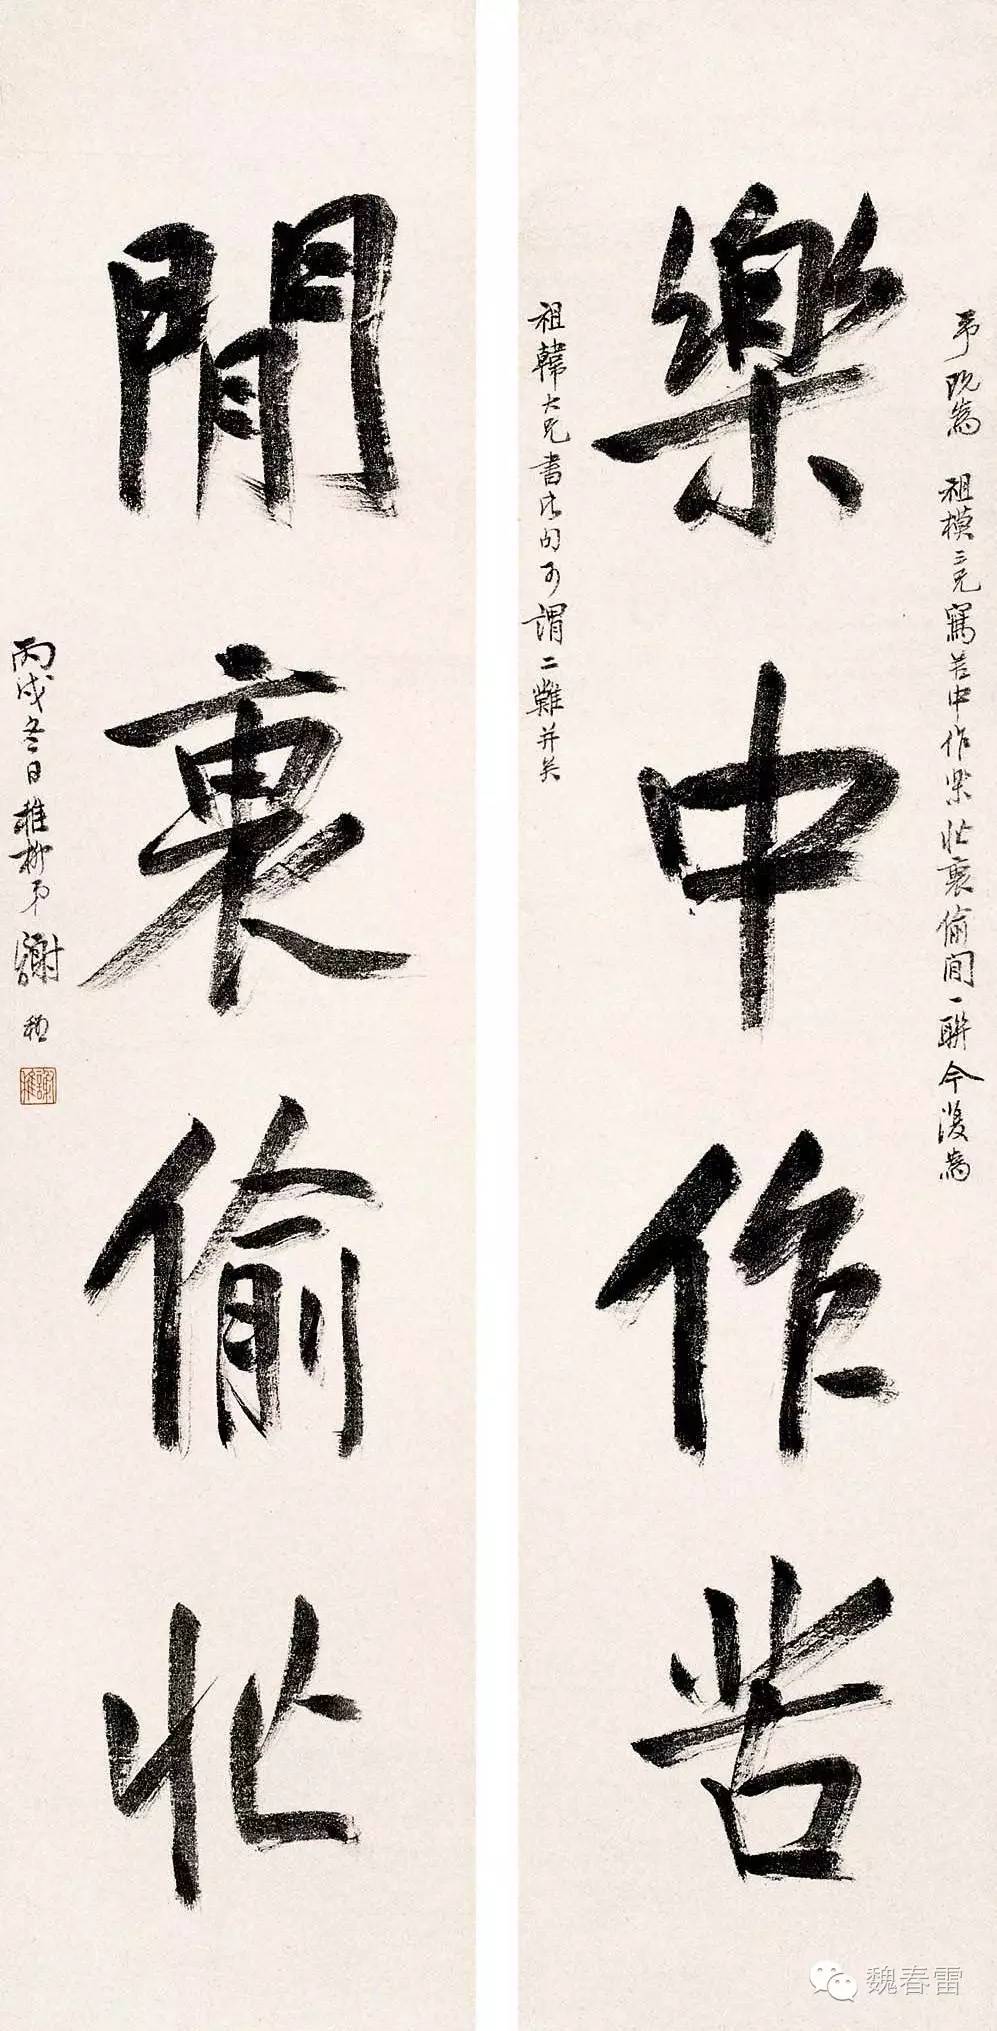 予既為祖模三兄寫苦中作樂忙裏偷閒一聯今復為
樂中作苦
祖韓大兄書此句可謂二難并矣
閒裏偷忙
丙戌冬日稚柳弟謝稚
魏春雷